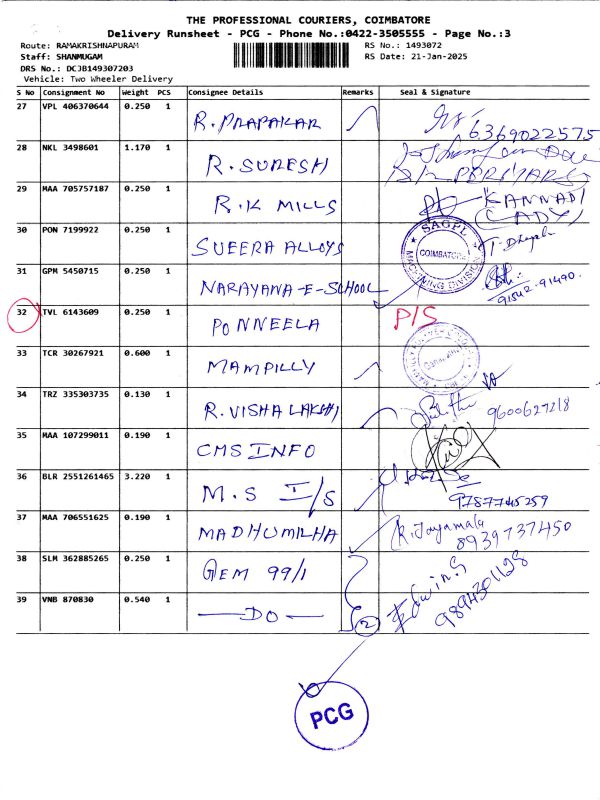 THE PROFESSIONAL COURIERS, COIMBATORE
Delivery Runsheet - PCG - Phone No.:0422-3505555 - Page No.:3
Route: RAMAKRISHNAPURAM
RS No.: 1493072
Staff: SHANMUGAM
RS Date: 21-Jan-2025
DRS No.: DCJB149307203
Vehicle: Two Wheeler Delivery
S No Consignment No Weight PCS Consignee Details Remarks Seal & Signature
27 VPL 406370644 0.250 1 R. PRAPAKAR 6369022575
28 NKL 3498601 1.170 1 R. SURESH
29 MAA 705757187 0.250 1 R.K MILLS KANNADI (LADY)
30 PON 7199922 0.250 1 SUEERA ALLOYS SAGPL COIMBATORE MACHINING DIVISION
31 GPM 5450715 0.250 1 NARAYANA-E-SCHOOL 91542-91490.
32 TVL 6143609 0.250 1 PONNEELA P/S
33 TCR 30267921 0.600 1 MAMPILLY
34 TRZ 335303735 0.130 1 R. VISHALAKSHI 9600627218
35 MAA 107299011 0.190 1 CMS INFO
36 BLR 2551261465 3.220 1 M.S I/S 9787745259
37 MAA 706551625 0.190 1 MADHUMILHA R. Jayamala 8939737450
38 SLM 362885265 0.250 1 GEM 99/1 Edwin.S
39 VNB 870830 0.540 1 —DO— 2 9894301128
PCG